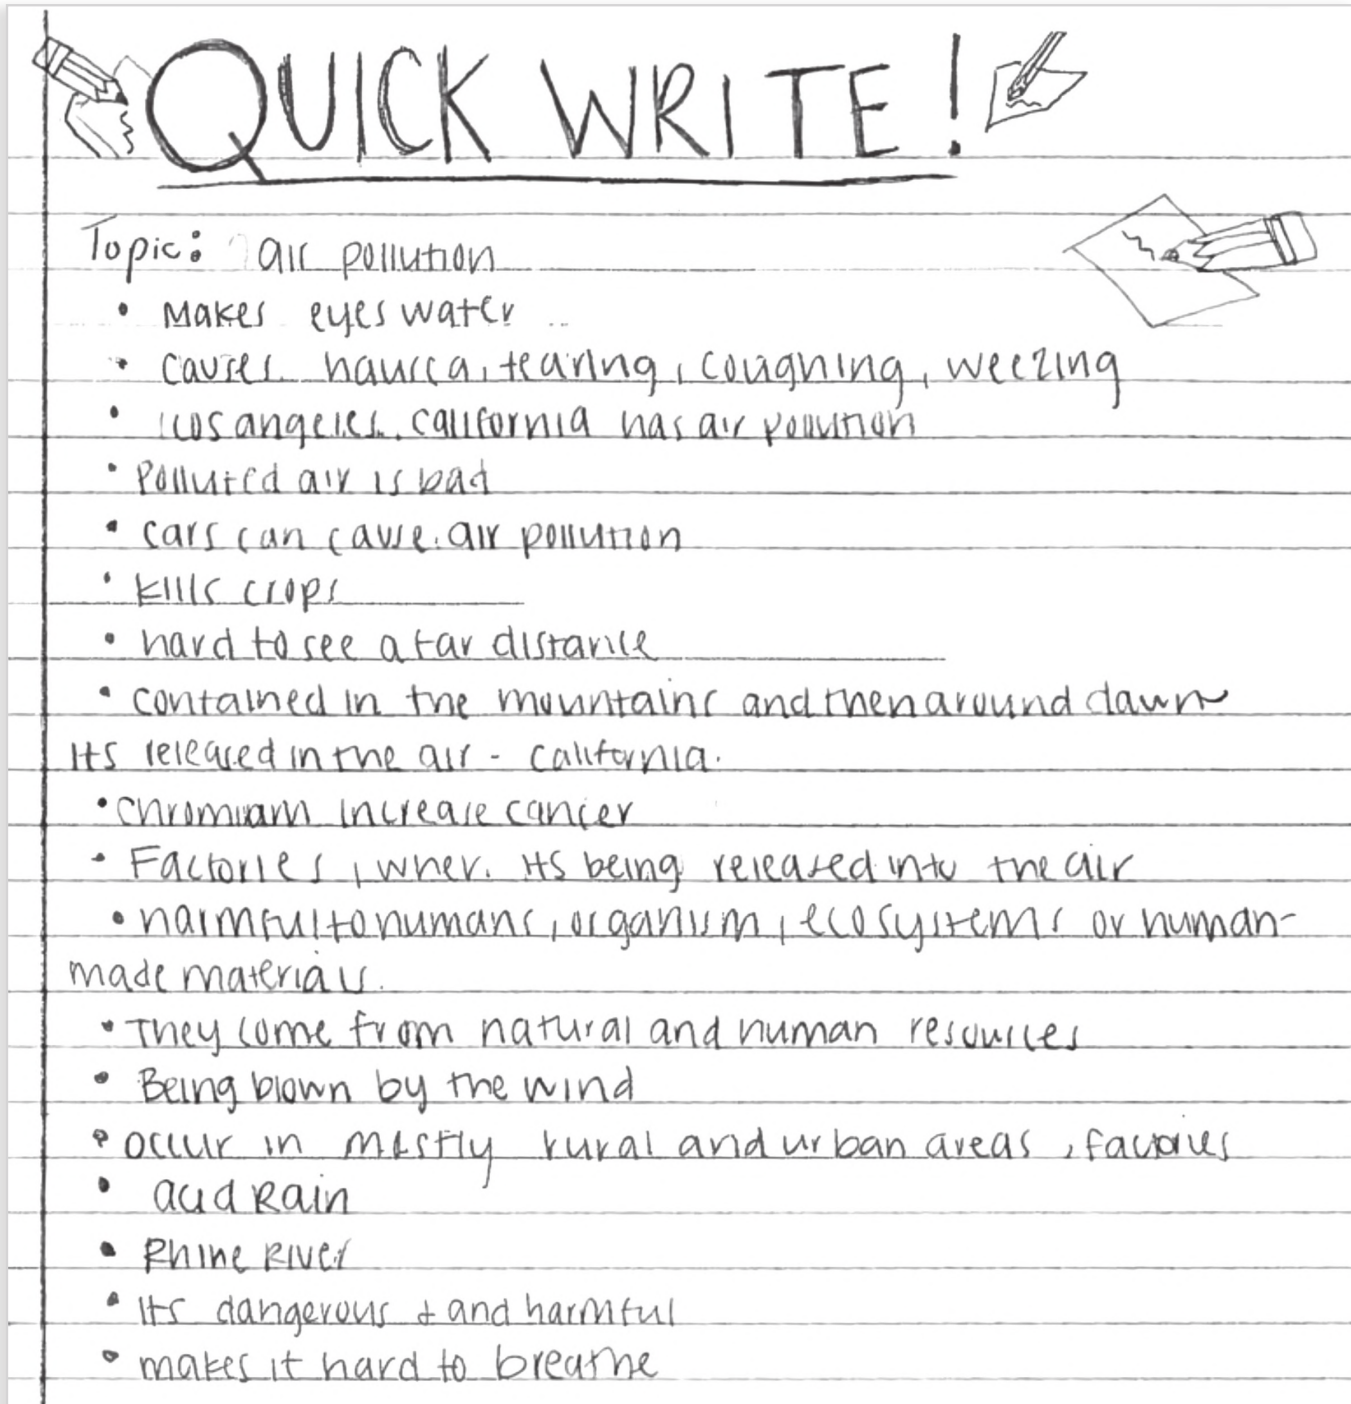 QUICK WRITE!
Topic: air pollution
• Makes eyes water
• causes nausea, tearing, coughing, weezing
• Los angeles, california has air pollution
• Polluted air is bad
• cars can cause air pollution
• kills crops
• hard to see a far distance
• contained in the mountains and then around dawn
its released in the air - california.
• chromium increase cancer
• Factories, wher. its being released into the air
• harmful to humans, organism, ecosystems or human-
made materials.
• They come from natural and human resources
• Being blown by the wind
• occur in mostly rural and urban areas, factories
• acid Rain
• Rhine River
• its dangerous & and harmful
• makes it hard to breathe